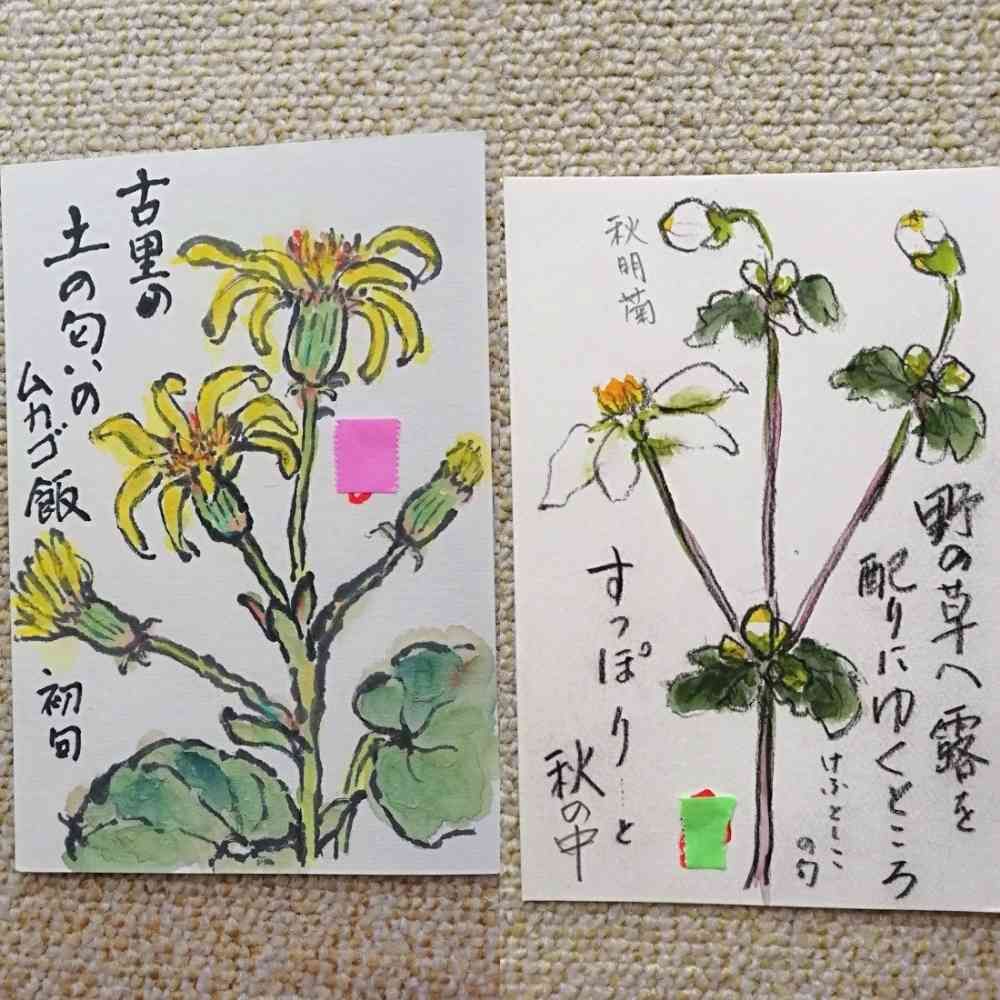 古里の
土の匂いの
ムカゴ飯
初旬
秋明菊
野の草へ露を
配りにゆくところ
けふとしこ
の句
すっぽり……と
秋の中